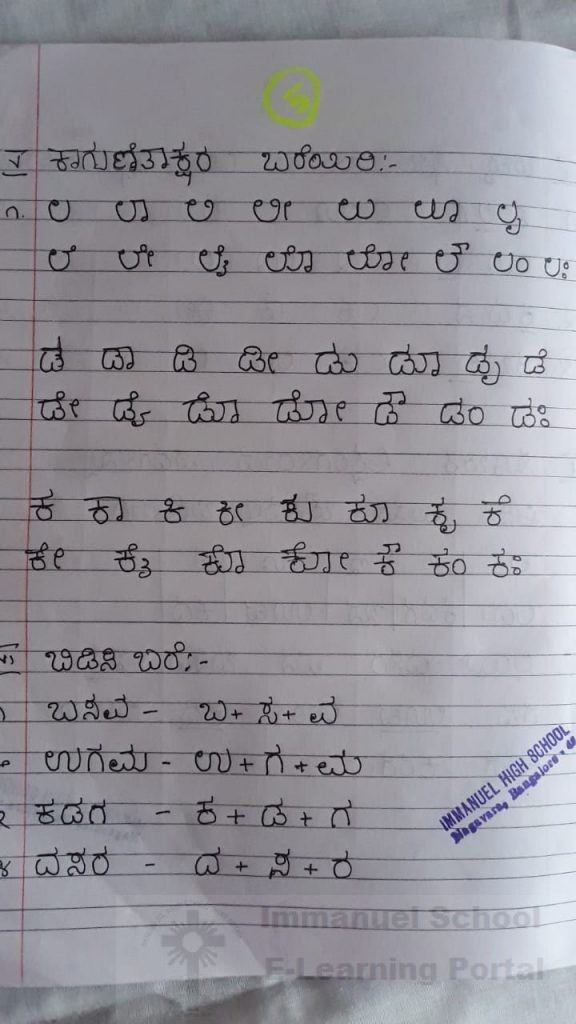 5
V ಕಾಗುಣಿತಾಕ್ಷರ ಬರೆಯಿರಿ:-
೧. ಲ ಲಾ ಲಿ ಲೀ ಲು ಲೂ ಲೃ
ಲೆ ಲೇ ಲೈ ಲೊ ಲೋ ಲೌ ಲಂ ಲಃ
ಡ ಡಾ ಡಿ ಡೀ ಡು ಡೂ ಡೃ ಡೆ
ಡೇ ಡೈ ಡೊ ಡೋ ಡೌ ಡಂ ಡಃ
ಕ ಕಾ ಕಿ ಕೀ ಕು ಕೂ ಕೃ ಕೆ
ಕೇ ಕೈ ಕೊ ಕೋ ಕೌ ಕಂ ಕಃ
VI ಬಿಡಿಸಿ ಬರೆ:-
೧ ಬಸವ - ಬ + ಸ + ವ
ಉಗಮ - ಉ + ಗ + ಮ
೩ ಕಡಗ - ಕ + ಡ + ಗ
೪ ದಸರ - ದ + ಸ + ರ
IMMANUEL HIGH SCHOOL
Bangalore
Immanuel School
E-Learning Portal